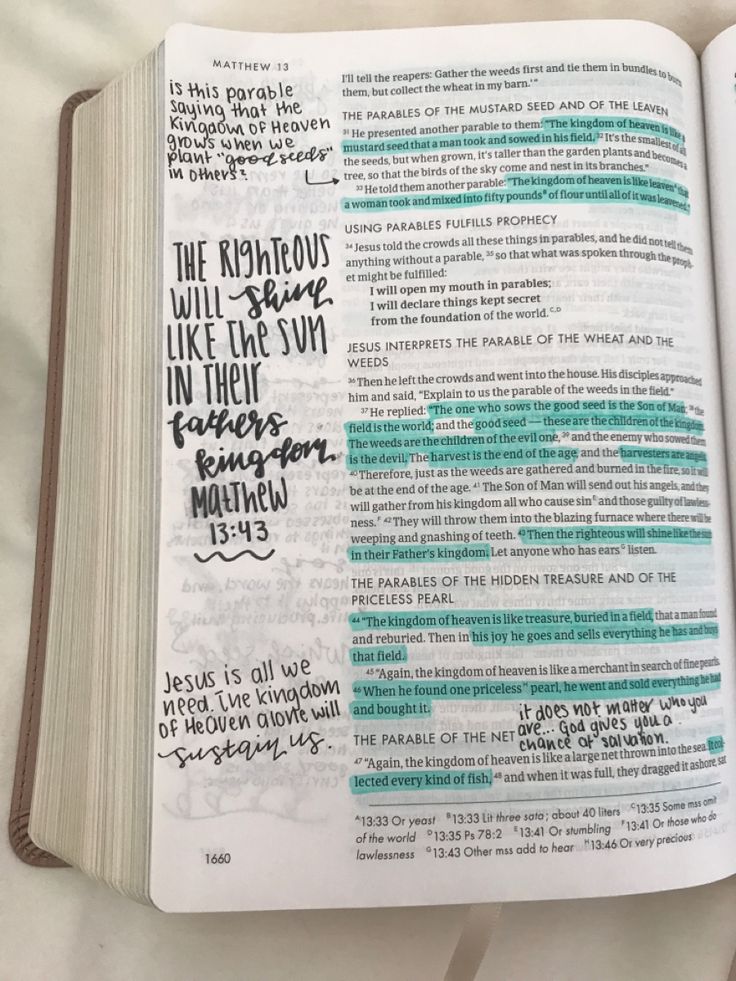 MATTHEW 13
is this parable
saying that the
Kingdom of Heaven
grows when we
plant "good seeds"
in others?
THE RIGHTEOUS
WILL shine
LIKE THE SUN
IN THEIR
fathers
kingdom
MATTHEW
13:43
Jesus is all we
need. The kingdom
of Heaven alone will
sustain us.
I'll tell the reapers: Gather the weeds first and tie them in bundles to burn
them, but collect the wheat in my barn.'"
THE PARABLES OF THE MUSTARD SEED AND OF THE LEAVEN
31 He presented another parable to them: "The kingdom of heaven is like a
mustard seed that a man took and sowed in his field. 32 It's the smallest of all
the seeds, but when grown, it's taller than the garden plants and becomes a
tree, so that the birds of the sky come and nest in its branches."
33 He told them another parable: "The kingdom of heaven is like leaven A that
a woman took and mixed into fifty pounds B of flour until all of it was leavened."
USING PARABLES FULFILLS PROPHECY
34 Jesus told the crowds all these things in parables, and he did not tell them
anything without a parable, 35 so that what was spoken through the proph-
et might be fulfilled:
I will open my mouth in parables;
I will declare things kept secret
from the foundation of the world. C,D
JESUS INTERPRETS THE PARABLE OF THE WHEAT AND THE
WEEDS
36 Then he left the crowds and went into the house. His disciples approached
him and said, "Explain to us the parable of the weeds in the field."
37 He replied: "The one who sows the good seed is the Son of Man; 38 the
field is the world; and the good seed — these are the children of the kingdom.
The weeds are the children of the evil one, 39 and the enemy who sowed them
is the devil. The harvest is the end of the age, and the harvesters are angels.
40 Therefore, just as the weeds are gathered and burned in the fire, so it will
be at the end of the age. 41 The Son of Man will send out his angels, and they
will gather from his kingdom all who cause sin E and those guilty of lawless-
ness. F 42 They will throw them into the blazing furnace where there will be
weeping and gnashing of teeth. 43 Then the righteous will shine like the sun
in their Father's kingdom. Let anyone who has ears G listen.
THE PARABLES OF THE HIDDEN TREASURE AND OF THE
PRICELESS PEARL
44 "The kingdom of heaven is like treasure, buried in a field, that a man found
and reburied. Then in his joy he goes and sells everything he has and buys
that field.
45 "Again, the kingdom of heaven is like a merchant in search of fine pearls.
46 When he found one priceless H pearl, he went and sold everything he had
and bought it.
it does not matter who you
are... God gives you a
chance at salvation.
THE PARABLE OF THE NET
47 "Again, the kingdom of heaven is like a large net thrown into the sea. It col-
lected every kind of fish, 48 and when it was full, they dragged it ashore, sat
A 13:33 Or yeast B 13:33 Lit three sata; about 40 liters C 13:35 Some mss omit
of the world D 13:35 Ps 78:2 E 13:41 Or stumbling F 13:41 Or those who do
lawlessness G 13:43 Other mss add to hear H 13:46 Or very precious
1660